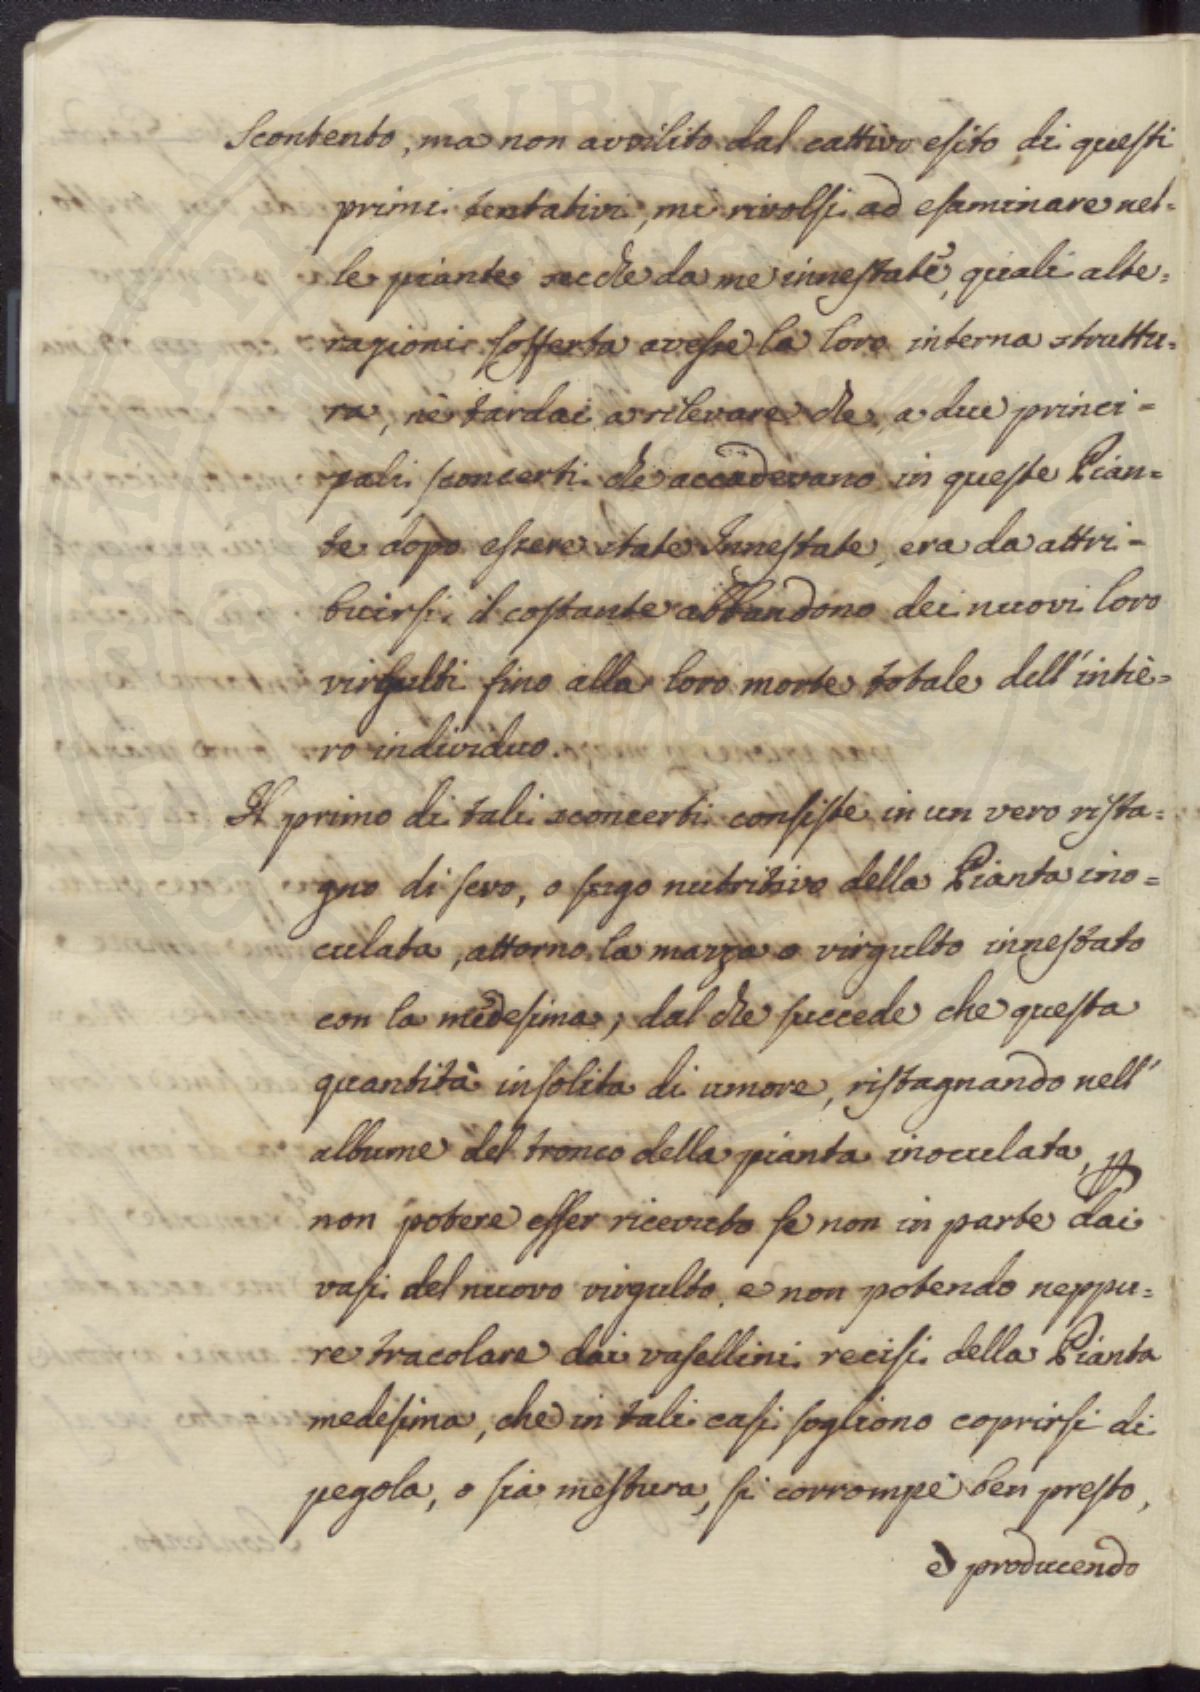 Scontento, ma non avvilito dal cattivo esito di questi
primi tentativi, mi rivolsi ad esaminare nel-
le piante secche da me innestate, quali alte-
razioni sofferta avesse la loro interna struttu-
ra, nè tardai a rilevare che, a due princi-
pali sconcerti che accadevano in queste Pian-
te dopo essere state Innestate, era da attri-
buirsi il costante abbandono dei nuovi loro
virgulti fino alla loro morte totale dell'intiè-
ro individuo.
Il primo di tali sconcerti consiste in un vero rista-
gno di sevo, o sugo nutritivo della Pianta ino-
culata, attorno la mazza o virgulto innestato
con la medesima; dal che succede che questa
quantità insolita di umore, ristagnando nell'
albume del tronco della pianta inoculata, p
non potere esser ricevuto se non in parte dai
vasi del nuovo virgulto, e non potendo neppu-
re tracolare dai vasellini recisi della Pianta
medesima, che in tali casi sogliono coprirsi di
pegola, o sia mestura, si corrompe ben presto,
e producendo